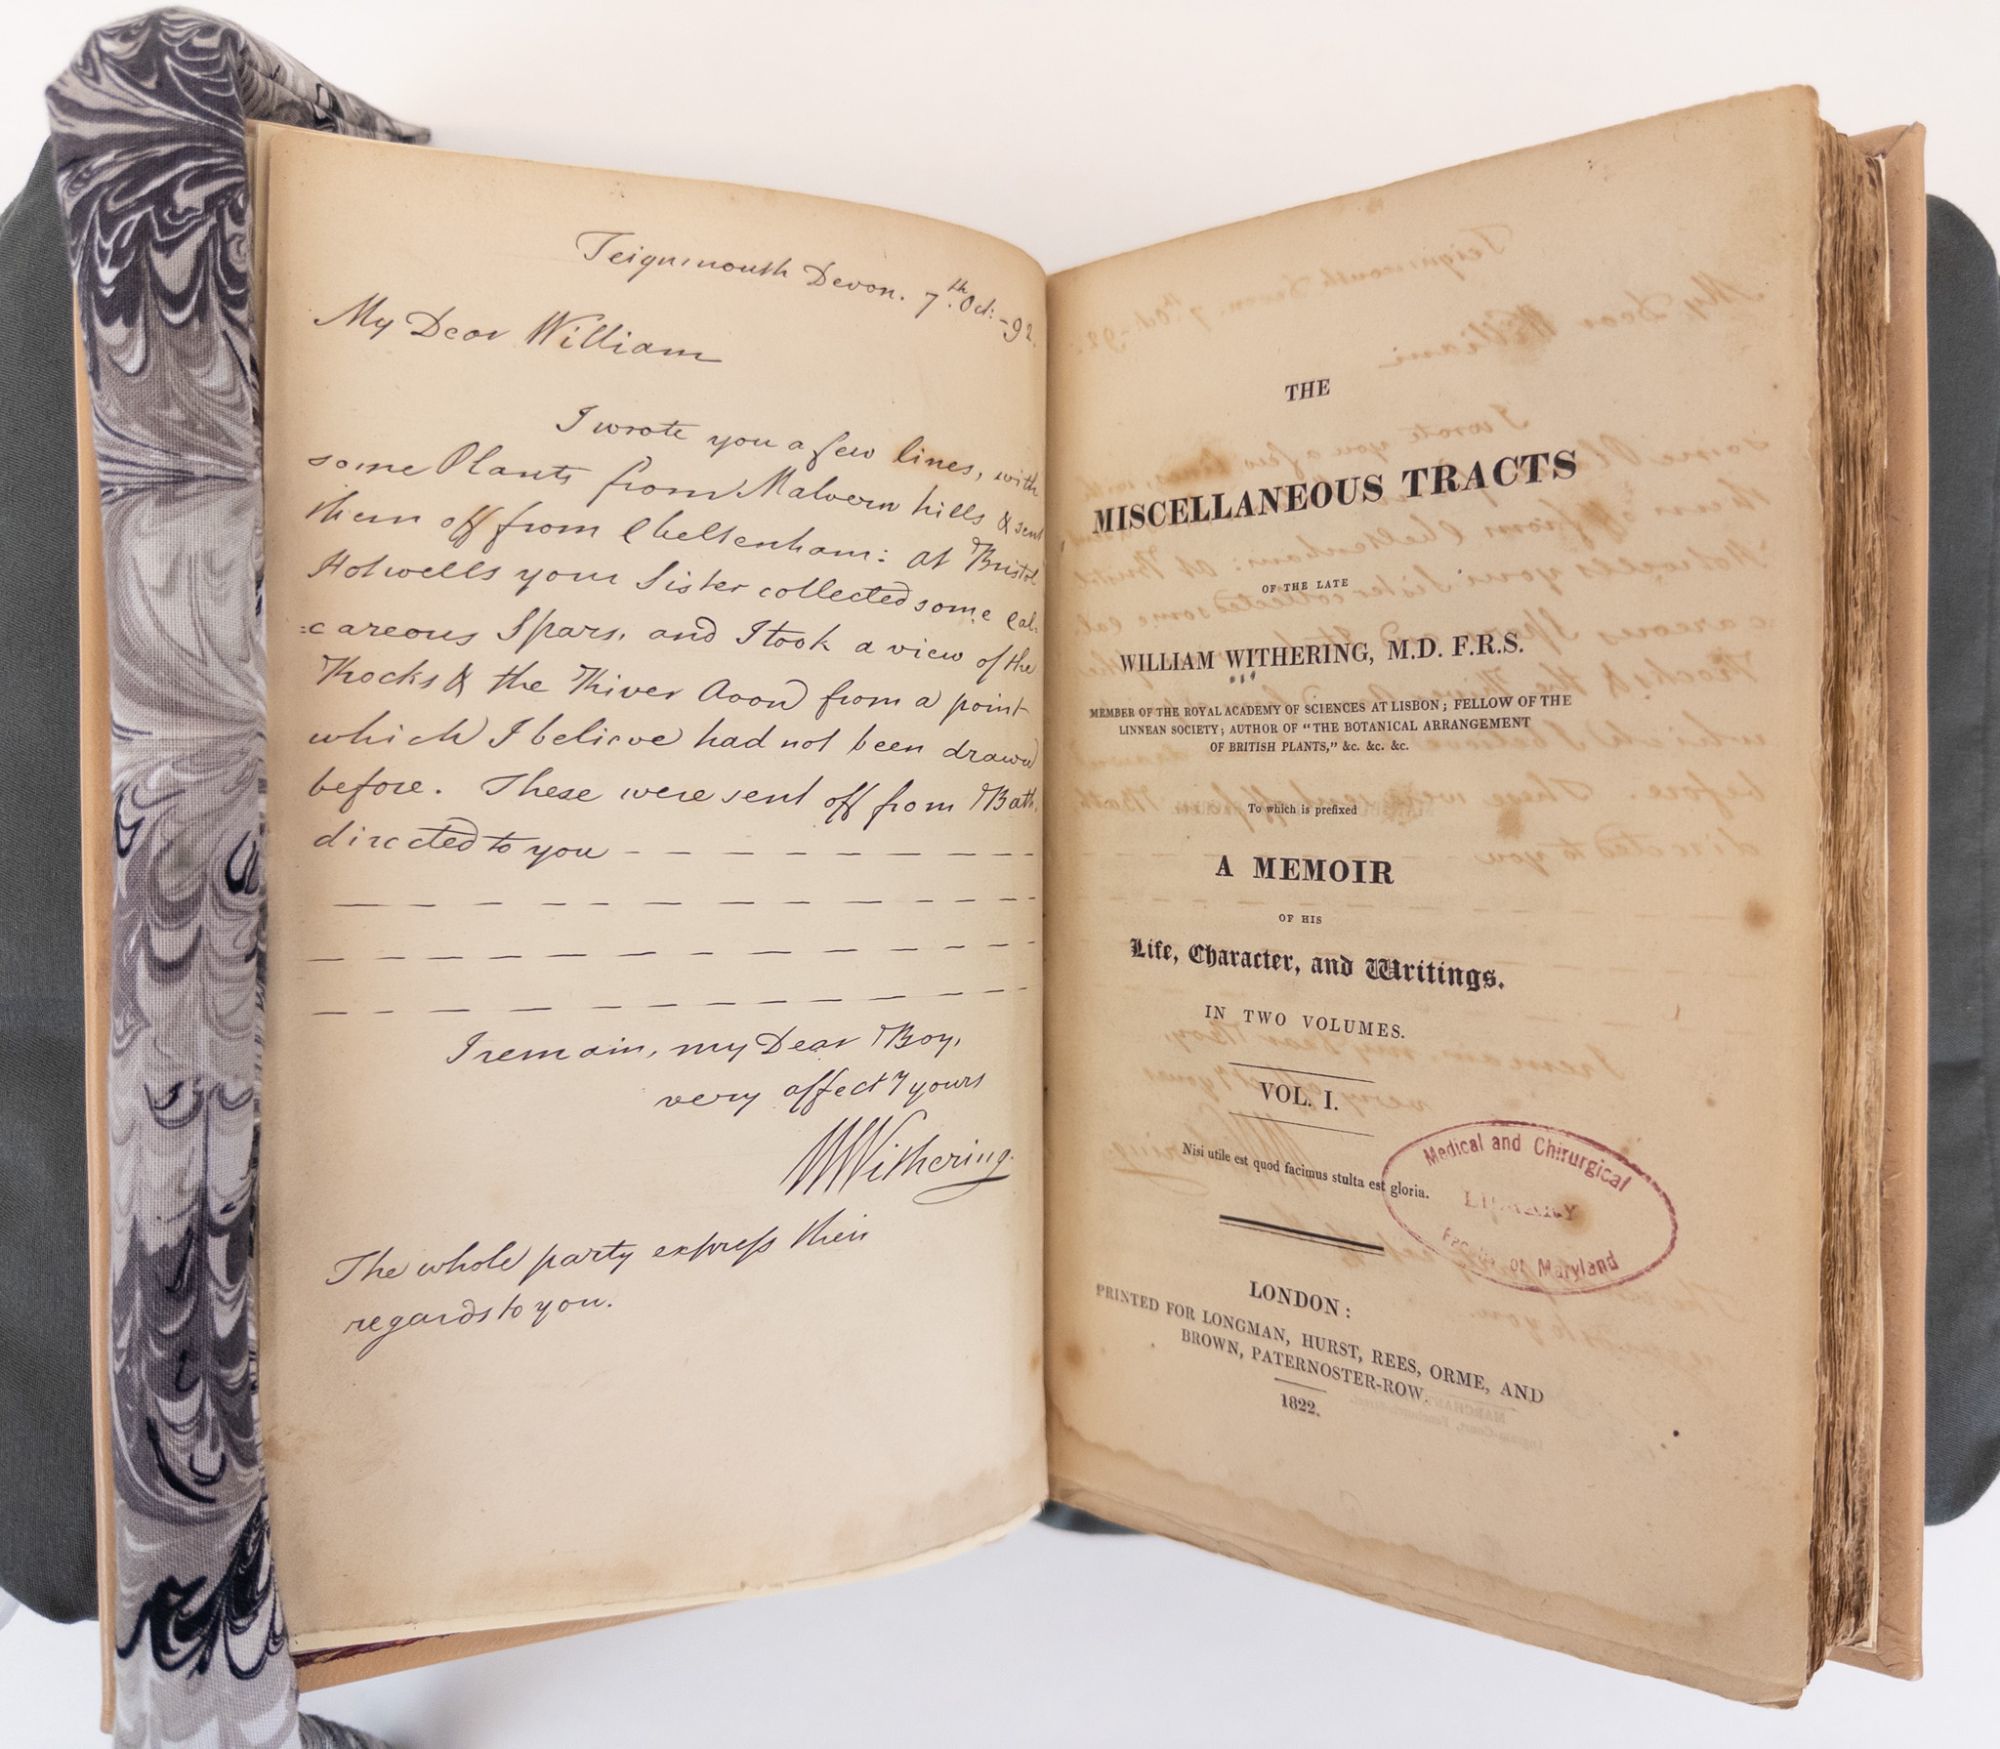 Teignmouth Devon. 7th. Oct: -92.
My Dear William
I wrote you a few lines, with
some Plants from Malvern hills & sent
them off from Cheltenham: at Bristol
Hotwells your Sister collected some Cal-
=careous Spars, and I took a view of the
Rocks & the River Avon from a point
which I believe had not been drawn
before. These were sent off from Bath,
directed to you – – – – – – – –
I remain, my Dear Boy,
very affectly yours
WWithering.
The whole party express their
regards to you.
THE
MISCELLANEOUS TRACTS
OF THE LATE
WILLIAM WITHERING, M.D. F.R.S.
MEMBER OF THE ROYAL ACADEMY OF SCIENCES AT LISBON; FELLOW OF THE
LINNEAN SOCIETY; AUTHOR OF "THE BOTANICAL ARRANGEMENT
OF BRITISH PLANTS," &c. &c. &c.
To which is prefixed
A MEMOIR
OF HIS
Life, Character, and Writings.
IN TWO VOLUMES.
VOL. I.
Nisi utile est quod facimus stulta est gloria.
Medical and Chirurgical
LIBRARY
Faculty of Maryland
LONDON:
PRINTED FOR LONGMAN, HURST, REES, ORME, AND
BROWN, PATERNOSTER-ROW.
1822.